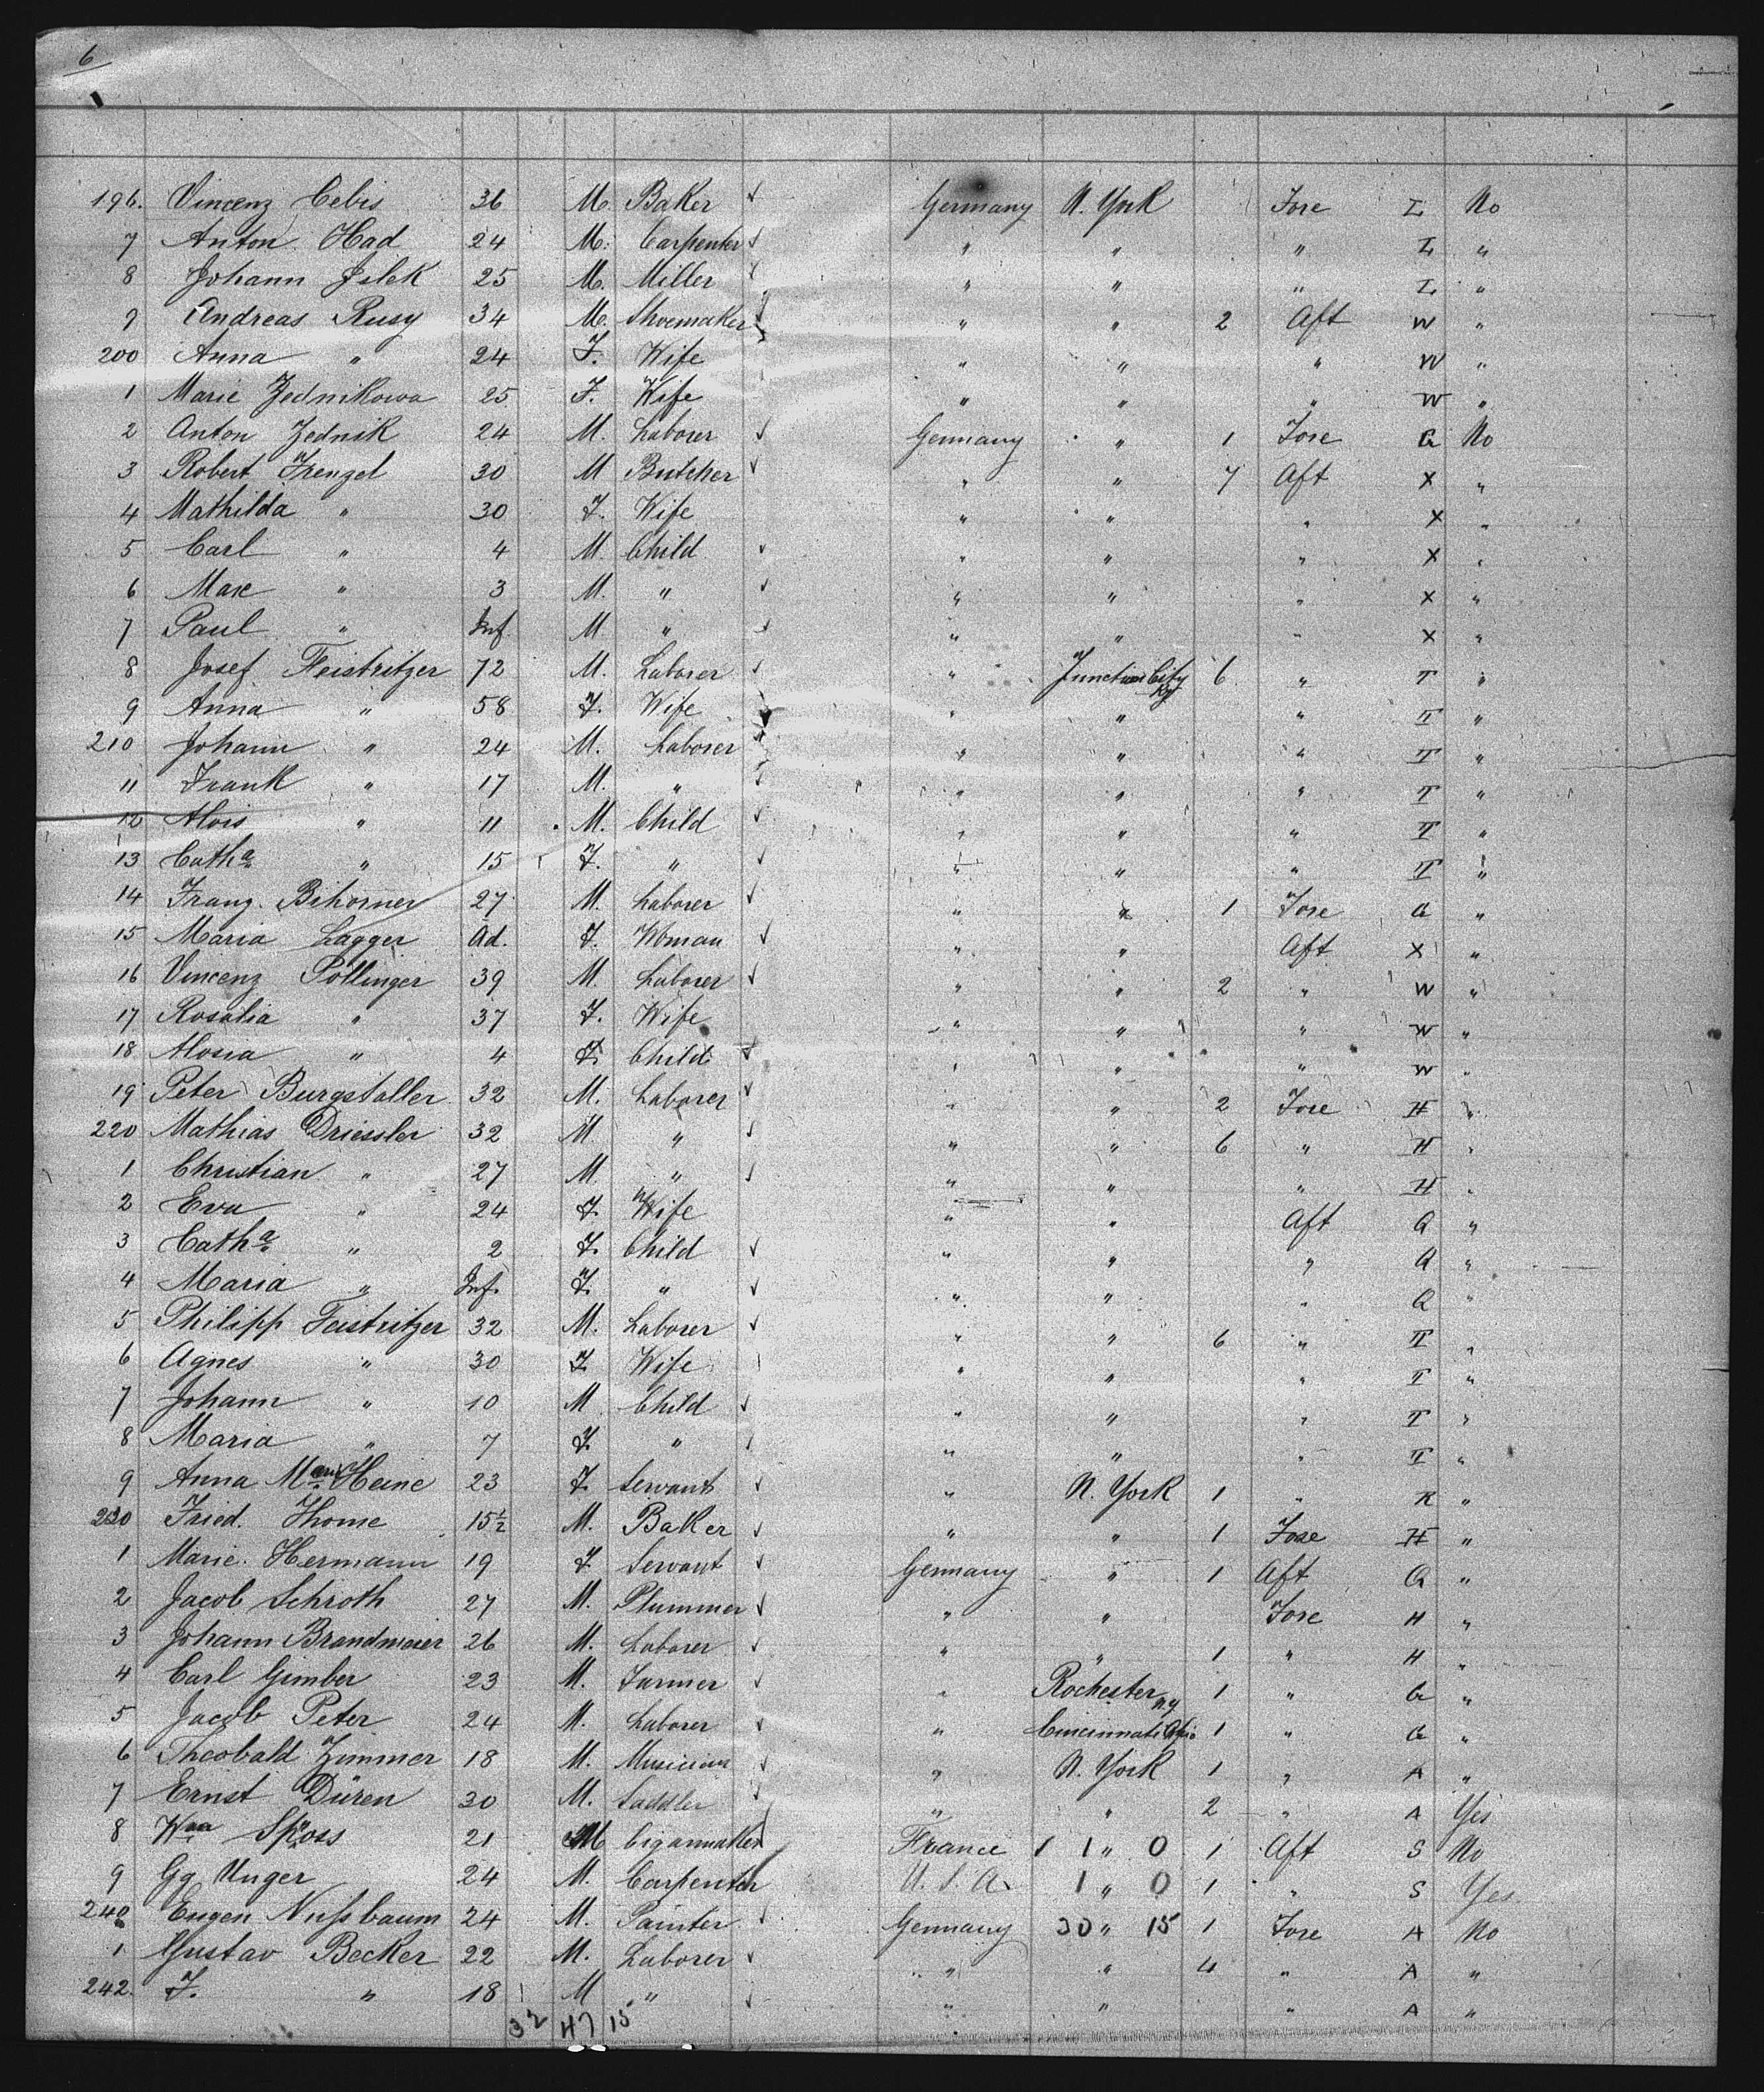 6
196. Vincenz Cebis 36 M. Baker Germany N. York Fore L No
7 Anton Had 24 M. Carpenter " " " L "
8 Johann Jslek 25 M. Miller " " " L "
9 Andreas Rusy 34 M. Shoemaker " " 2 Aft W "
200 Anna " 24 F. Wife " " " W "
1 Marie Zednikowa 25 F. Wife " " " W "
2 Anton Zednik 24 M. Laborer Germany " 1 Fore G No
3 Robert Frenzel 30 M Butcher " " 7 Aft X "
4 Mathilda " 30 F. Wife " " " X "
5 Carl " 4 M. Child " " " X "
6 Max " 3 M. " " " " X "
7 Paul " Inf. M. " " " " X "
8 Josef Feistritzer 72 M. Laborer " Junction City Ky 6 " T "
9 Anna " 58 F. Wife " " " T "
210 Johann " 24 M. Laborer " " " T "
11 Frank " 17 M. " " " " T "
12 Alois " 11 M. Child " " " T "
13 Catha " 15 F. " " " " T "
14 Franz Bihorner 27 M. Laborer " " 1 Fore G "
15 Maria Lagger Ad. F. Woman " " Aft X "
16 Vincenz Pollinger 39 M. Laborer " " 2 " W "
17 Rosalia " 37 F. Wife " " " W "
18 Alosia " 4 F. Child " " " W "
19 Peter Burgstaller 32 M. Laborer " " 2 Fore H "
220 Mathias Driessler 32 M " " " 6 " H "
1 Christian " 27 M. " " " " H "
2 Eva " 24 F. Wife " " Aft Q "
3 Catha " 2 F. Child " " " Q "
4 Maria " Inf. F. " " " " Q "
5 Philipp Feistritzer 32 M. Laborer " " 6 " T "
6 Agnes " 30 F. Wife " " " T "
7 Johann " 10 M Child " " " T "
8 Maria " 7 F. " " " " T "
9 Anna Heine 23 F. Servant " N. York 1 " R "
230 Fried. Thome 15½ M. Baker " " 1 Fore H "
1 Marie Hermann 19 F. Servant Germany " 1 Aft Q "
2 Jacob Schroth 27 M. Plummer " " Fore H "
3 Johann Brandmaier 26 M. Laborer " " 1 " H "
4 Carl Gimber 23 M. Farmer " Rochester N.Y 1 " G "
5 Jacob Peter 24 M. Laborer " Cincinnati Ohio 1 " G "
6 Theobald Zimmer 18 M. Musician " N. York 1 " A "
7 Ernst Düren 30 M. Saddler " " 2 " A Yes
8 Wm Sposs 21 M Cigarmaker France 1 " 0 1 Aft S No
9 Gg Unger 24 M. Carpenter U.S.A. 1 " 0 1 " S Yes
240 Eugen Nussbaum 24 M. Painter Germany 30 " 15 1 Fore A No
1 Gustav Becker 22 M. Laborer " " 4 " A "
242. F. " 18 M " " " " A "
32 47 15